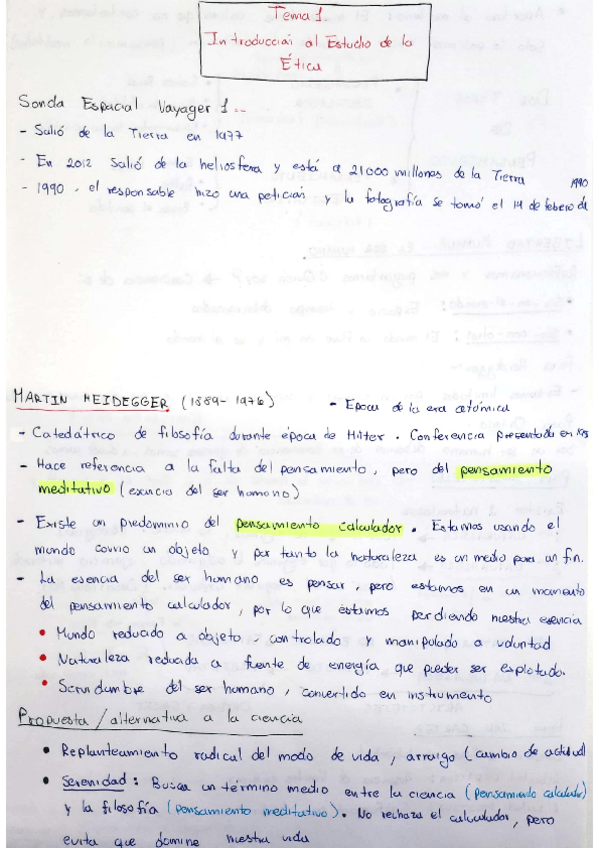 Tema 1.
Introducción al Estudio de la
Ética
Sonda Espacial Voyager 1 ..
- Salió de la Tierra en 1977
- En 2012 salió de la heliosfera y está a 21000 millones de la Tierra
- 1990, el responsable hizo una petición y la fotografía se tomó el 14 de febrero de 1990
MARTIN HEIDEGGER (1889 - 1976) - Epoca de la era atómica
- Catedrático de filosofía durante época de Hitler. Conferencia presentada en
- Hace referencia a la falta del pensamiento, pero del pensamiento
meditativo (esencia del ser humano)
- Existe un predominio del pensamiento calculador. Estamos usando el
mundo como un objeto y por tanto la naturaleza es un medio para un fin.
- La esencia del ser humano es pensar, pero estamos en un momento
del pensamiento calculador, por lo que estamos perdiendo nuestra esencia
• Mundo reducido a objeto - controlado y manipulado a voluntad
• Naturaleza reducida a fuente de energía que pueder ser explotado.
• Servidumbre del ser humano, convertido en instrumento
Propuesta / alternativa a la ciencia
• Replanteamiento radical del modo de vida, arraigo (cambio de actitud)
• Serenidad: Busca un término medio entre la ciencia (pensamiento calculador)
y la filosofía (pensamiento meditativo). No rechaza el calculador, pero
evita que domine nuestra vida